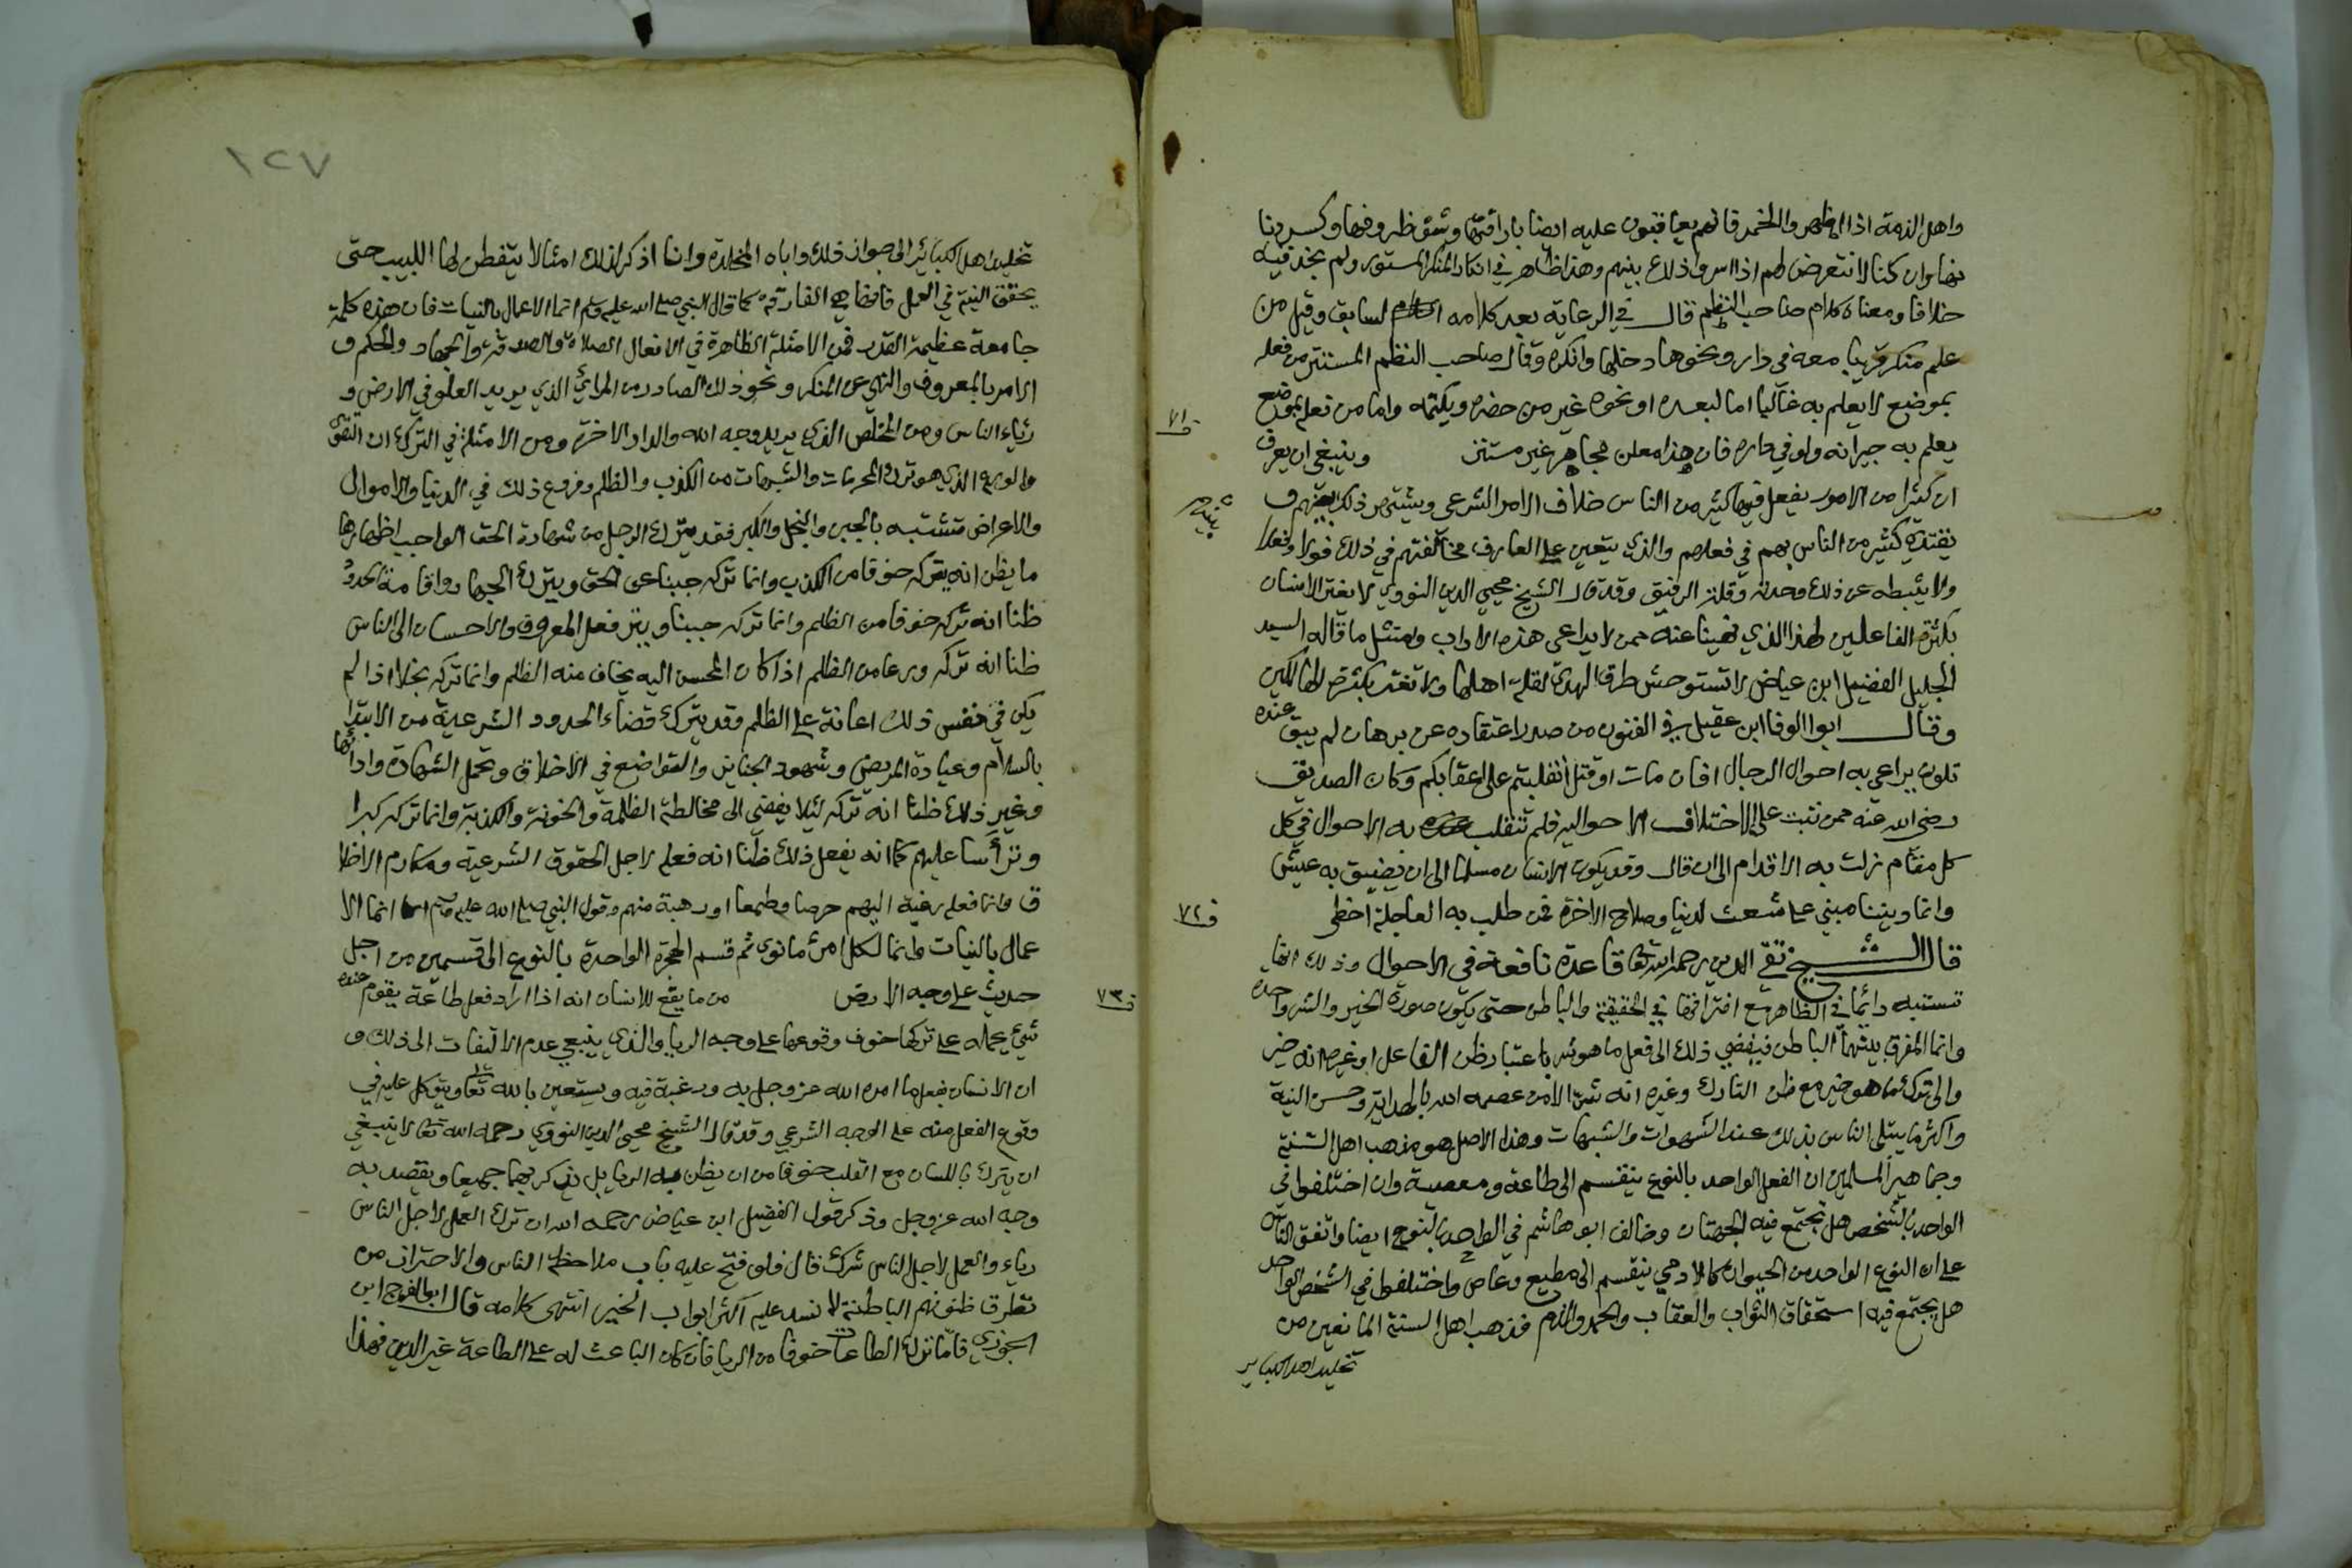 واهل الذمة اذا اظهروا الخمر فانهم يعاقبون عليه ايضا باراقتها وشق ظروفها وكسر دنا
نها وان كنا لا نتعرض لهم اذا اسروا ذلك بينهم وهذا ظاهر في انكار المنكر المستور ولم نجد فيه
خلافا ومعناه كلام صاحب النظم قال في الرعاية بعد كلامه السابق وقيل من
علم منكرا قريبا معه في دار ونحوها دخلها وانكره وقال صاحب النظم المستتر من فعله
بموضع لا يعلم به غالبا اما لبعده او نحوه غير من حضره ويكتمه واما من فعله بموضع
ف ٧١
يعلم به جيرانه ولو في داره فان هذا معلن مجاهر غير مستتر وينبغي ان يعرف
ان كثيرا من الامور يفعل فيها كثير من الناس خلاف الامر الشرعي ويشتهر ذلك بينهم و
بينهم
يقتدي كثير من الناس بهم في فعلهم والذي يتعين على العارف مخالفتهم في ذلك قولا وفعلا
ولا يثبطه عن ذلك وحدته وقلة الرفيق وقد قال الشيخ محيي الدين النووي لا يغتر الانسان
بكثرة الفاعلين لهذا الذي نهينا عنه ممن لا يراعي هذه الاداب وامتثل ما قاله السيد
الجليل الفضيل ابن عياض لا تستوحش طرق الهدى لقلة اهلها ولا تغتر بكثرة الهالكين
وقال ابوا الوفا ابن عقيل في الفنون من صدر اعتقاده عن برهان لم يبق عنده
تلون يراعي به احوال الرجال افان مات او قتل انقلبتم على اعقابكم وكان الصديق
رضي الله عنه ممن ثبت على الاختلاف الاحوال فلم تتقلب به الاحوال في كل
كل مقام زلت به الاقدام الى ان قال وقد يكون الانسان مسلما الى ان يضيق به عيش
وانما ديننا مبني على شعث الدنيا وصلاح الاخرة فمن طلب به العاجلة اخطى
ف ٧٢
قال الشيخ تقي الدين رحمه الله تعا قاعدة نافعة في الاحوال وذلك انها
تستبه دائما في الظاهر مع افتراقها في الحقيقة والباطن حتى يكون صورة الخير والشر واحدة
وانما المفرق بينهما الباطن فيفضي ذلك الى فعل ما هو شر باعتبار ظن الفاعل او غيره انه خير
والى ترك ما هو خير مع ظن التارك وغيره انه شر الا من عصمه الله بالهداية وحسن النية
واكثر ما يبتلى الناس بذلك عند الشهوات والشبهات وهذا الاصل هو مذهب اهل السنة
وجماهير المسلمين ان الفعل الواحد بالنوع ينقسم الى طاعة ومعصية وان اختلفوا في
الواحد بالشخص هل تجتمع فيه الجهتان وخالف ابو هاشم في الواحد بالنوع ايضا واتفق الناس
على ان النوع الواحد من الحيوان كالادمي ينقسم الى مطيع وعاص واختلفوا في الشخص الواحد
هل يجتمع فيه استحقاق الثواب والعقاب والحمد والذم فذهب اهل السنة المانعين من
تخليد اهل الكبائر
١٢٧
تخليد اهل الكبائر الى جواز ذلك واباه المخلدة وانا اذكر لذلك امثالا يتفطن لها اللبيب حتى
يحقق النية في العمل فانها هي الفارقة كما قال النبي صلى الله عليه وسلم انما الاعمال بالنيات فان هذه كلمة
جامعة عظيمة القدر فمن الامثلة الظاهرة في الافعال الصلاة والصدقة والجهاد والحكم و
الامر بالمعروف والنهي عن المنكر ونحو ذلك الصادر من المرائي الذي يريد العلو في الارض و
رئاء الناس ومن المخلص الذي يريد وجه الله والدار الاخرة ومن الامثلة في الترك ان التقوى
والورع الذي هو ترك المحرمات والشبهات من الكذب والظلم وفروع ذلك في الدنيا والاموال
والاعراض تشتبه بالجبن والبخل والكبر فقد يترك الرجل من شهادة الحق الواجب اظهارها
ما يظن انه يتركه خوفا من الكذب وانما تركه جبنا عن الحق ويترك الجهاد واقامة الحدود
ظنا انه تركه خوفا من الظلم وانما تركه جبنا ويترك فعل المعروف والاحسان الى الناس
ظنا انه تركه ورعا من الظلم اذا كان المحسن اليه يخاف منه الظلم وانما تركه بخلا اذا لم
يكن في نفس ذلك اعانة على الظلم وقد يترك قضاء الحدود الشرعية من الابتداء
بالسلام وعيادة المريض وشهود الجنايز والتواضع في الاخلاق وتحمل الشهادة وادائها
وغير ذلك ظنا انه تركه لئلا يفضي الى مخالطة الظلمة والخونة والكذبة وانما تركه كبرا
وترأسا عليهم كما انه يفعل ذلك ظنا انه فعله لاجل الحقوق الشرعية ومكارم الاخلا
ق وانما فعله رغبة اليهم حرصا وطمعا او رهبة منهم وقول النبي صلى الله عليه وسلم انما الا
عمال بالنيات وانما لكل امرئ ما نوى ثم قسم الهجرة الواحدة بالنوع الى قسمين من اجل
ف ٧٣
حديث على وجه الارض من ما يقع للانسان انه اذا اراد فعل طاعة يقوم عنده
شيئ يحمله على تركها خوف وقوعها على وجه الريا والذي ينبغي عدم الالتفات الى ذلك و
ان الانسان يفعل ما امره الله عز وجل به ورغبه فيه ويستعين بالله تعا ويتوكل عليه في
وقوع الفعل منه على الوجه الشرعي وقد قال الشيخ محيي الدين النووي رحمه الله تعا لا ينبغي
ان يترك باللسان مع القلب خوفا من ان يظن به الريا بل يذكر بهما جميعا ويقصد به
وجه الله عز وجل وذكر قول الفضيل ابن عياض رحمه الله ان ترك العمل لاجل الناس
رياء والعمل لاجل الناس شرك قال فلو فتح عليه باب ملاحظة الناس والاحتراز من
تطرق ظنونهم الباطنة لا نسد عليه اكثر ابواب الخير انتهى كلامه قال ابو الفرج ابن
الجوزي فاما ترك الطاعات خوفا من الريا فان كان الباعث له على الطاعة غير الدين فهذا